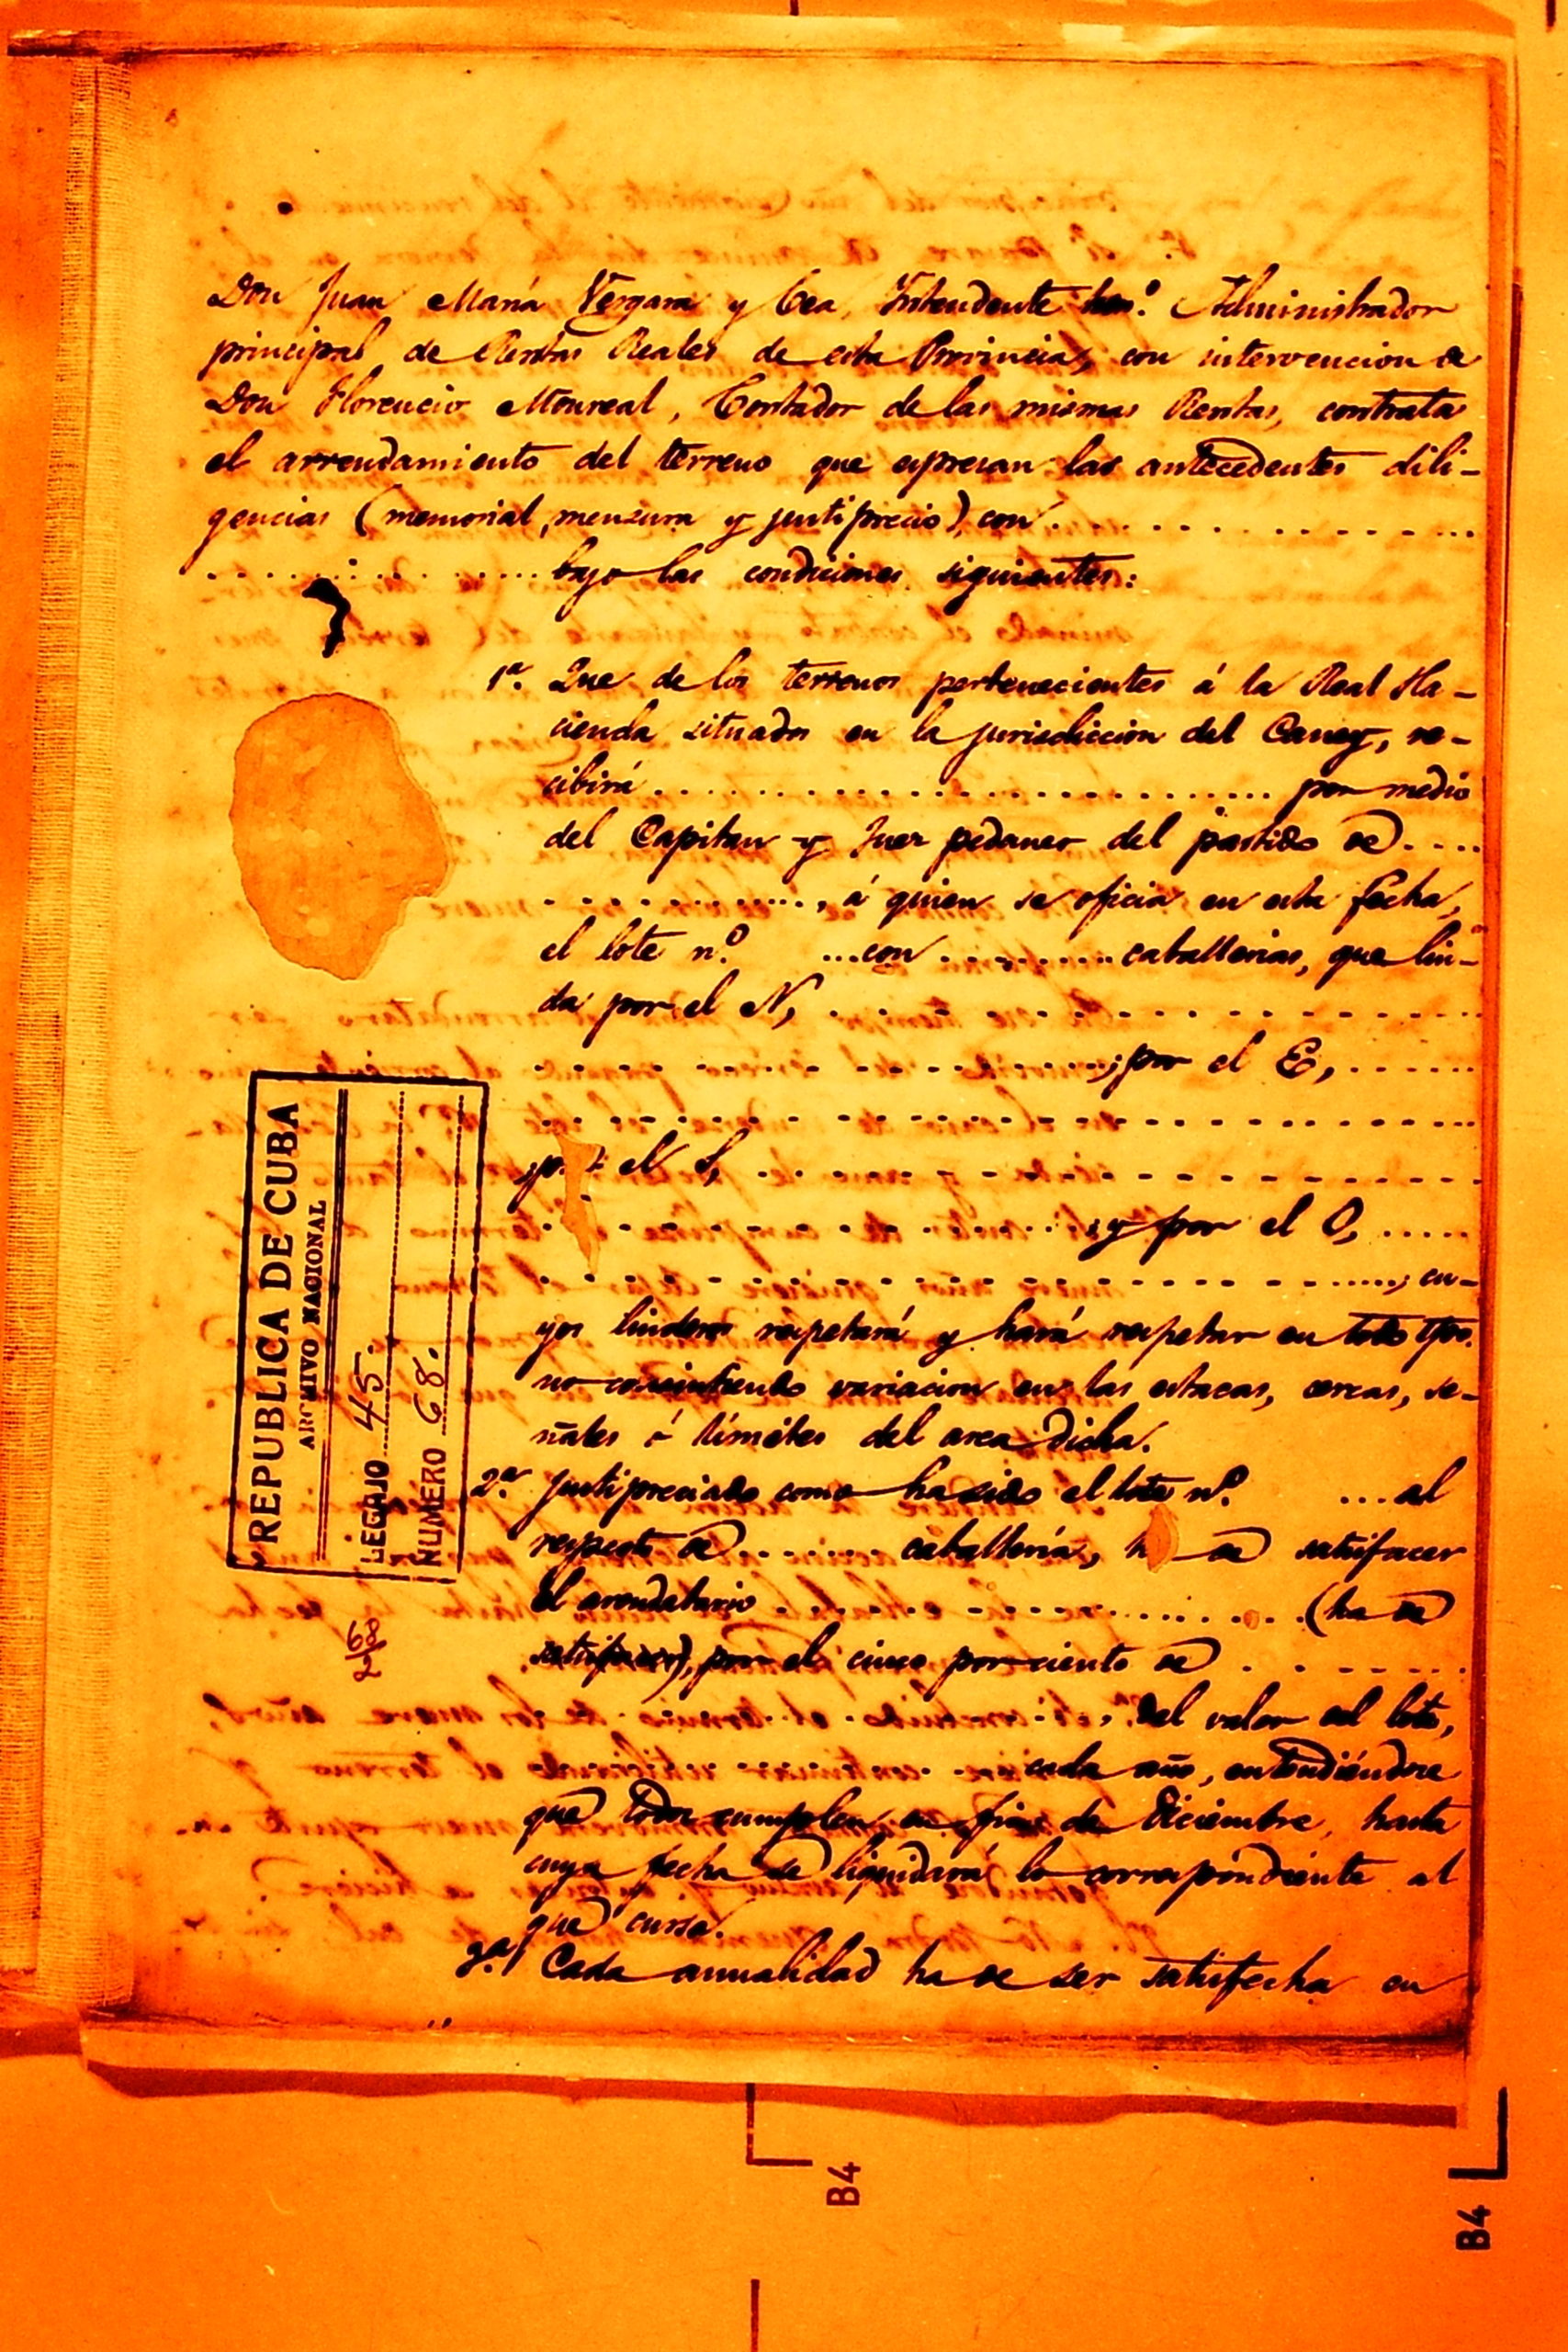 Don Juan María Vergara y Cea, Intendente hon.º Administrador
principal de Rentas Reales de esta Provincia, con intervencion de
Don Florencio Monreal, Contador de las mismas Rentas, contrata
el arrendamiento del terreno que espresan las antecedentes dili-
gencias (memorial, menzura y justiprecio), con . . . . . . . . . . . . . .
. . . . . . . . . . . . . . . . bajo las condiciones siguientes:
1ª. Que de los terrenos pertenecientes á la Real Ha-
cienda situados en la jurisdiccion del Caney, re-
cibirá . . . . . . . . . . . . . . . . . . . . . . . por medio
del Capitan y Juez pedaneo del partido de . . . .
. . . . . . . . . . . . , á quien se oficia en esta fecha,
el lote n.º ...con . . . . . . . . caballerias, que lin-
da por el N, . . . . . . . . . . . . . . . . . . . .
. . . . . . . . . . . . . . . . . . ; por el E, . . . . . .
. . . . . . . . . . . . . . . . . . . . . . . . . .
p.r el S, . . . . . . . . . . . . . . . . . . . . .
. . . . . . . . . . . . . . . . ; y por el O, . . . . .
. . . . . . . . . . . . . . . . . . . . . . . . ; cu-
yos linderos respetará y hará respetar en todo tpo.
no consintiendo variacion en las estacas, cercas, se-
ñales ó límites del area dicha.
2ª. Justipreciado como ha sido el lote n.º ...al
respecto de . . . . . . . caballería, h de satisfacer
el arrendatario . . . . . . . . . . . . . . . . (ha de
satisfacer), por el cinco por ciento de . . . . . . . .
del valor del lote,
cada año, entendiéndose
que todos cumplen en fin de Diciembre, hasta
cuya fecha se liquidará lo correspondiente al
que cursa.
3ª. Cada anualidad ha de ser satisfecha en
REPUBLICA DE CUBA
ARCHIVO NACIONAL
LEGAJO 45.
NUMERO 68.
68
2
B4
B4